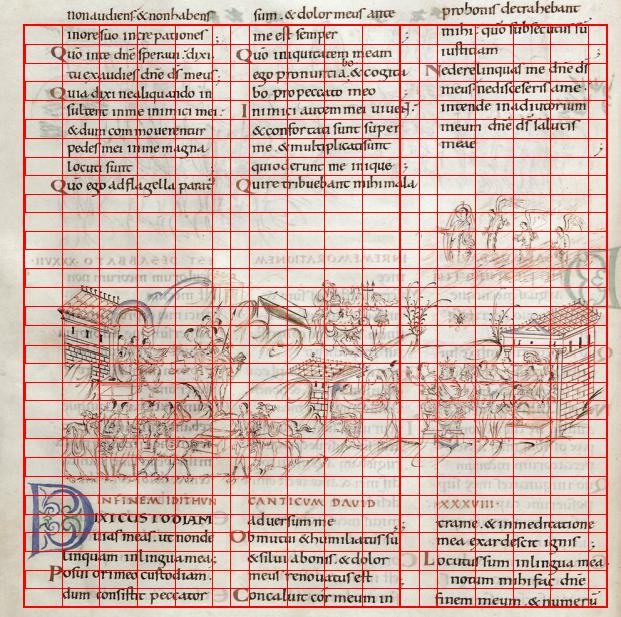 non audiens & non habens
in ore suo increpationes ;
Quo in te dne speraui. dixi.
tu exaudies dne ds meus ;
Quia dixi nealiquando in
sultent inme inimici mei :
& dum commouentur
pedes mei inme magna
locuti sunt ;
Quo ego ad flagella parat
sum. & dolor meus ante
me est semper ;
Quo iniquitatem meam
bo
ego pronuntia. & cogita
bo pro peccato meo ;
Inimici autem mei uiuent.
& confortati sunt super
me. & multiplicati sunt
qui oderunt me inique ;
Qui retribuebant mihi mala
pro bonis detrahebant
mihi. quo subsecutus su
iustitiam ;
Nederelinquas me dne ds
meus. nediscesseris a me.
intende in adiutorium
meum dne ds salutis
meae ;
IN FINEM IDITHUN CANTICUM DAUID XXXVIII.
DIXI CUSTODIAM
uias meas. ut non de
linquam in lingua mea ;
Posui ori meo custodiam.
dum consistit peccator
aduersum me ;
Obmutui & humiliatus su
& silui a bonis. & dolor
meus renouatus est ;
Concaluit cor meum in
tra me. & in meditatione
mea exardescit ignis ;
Locutus sum in lingua mea.
notum mihi fac dne
finem meum. & numeru